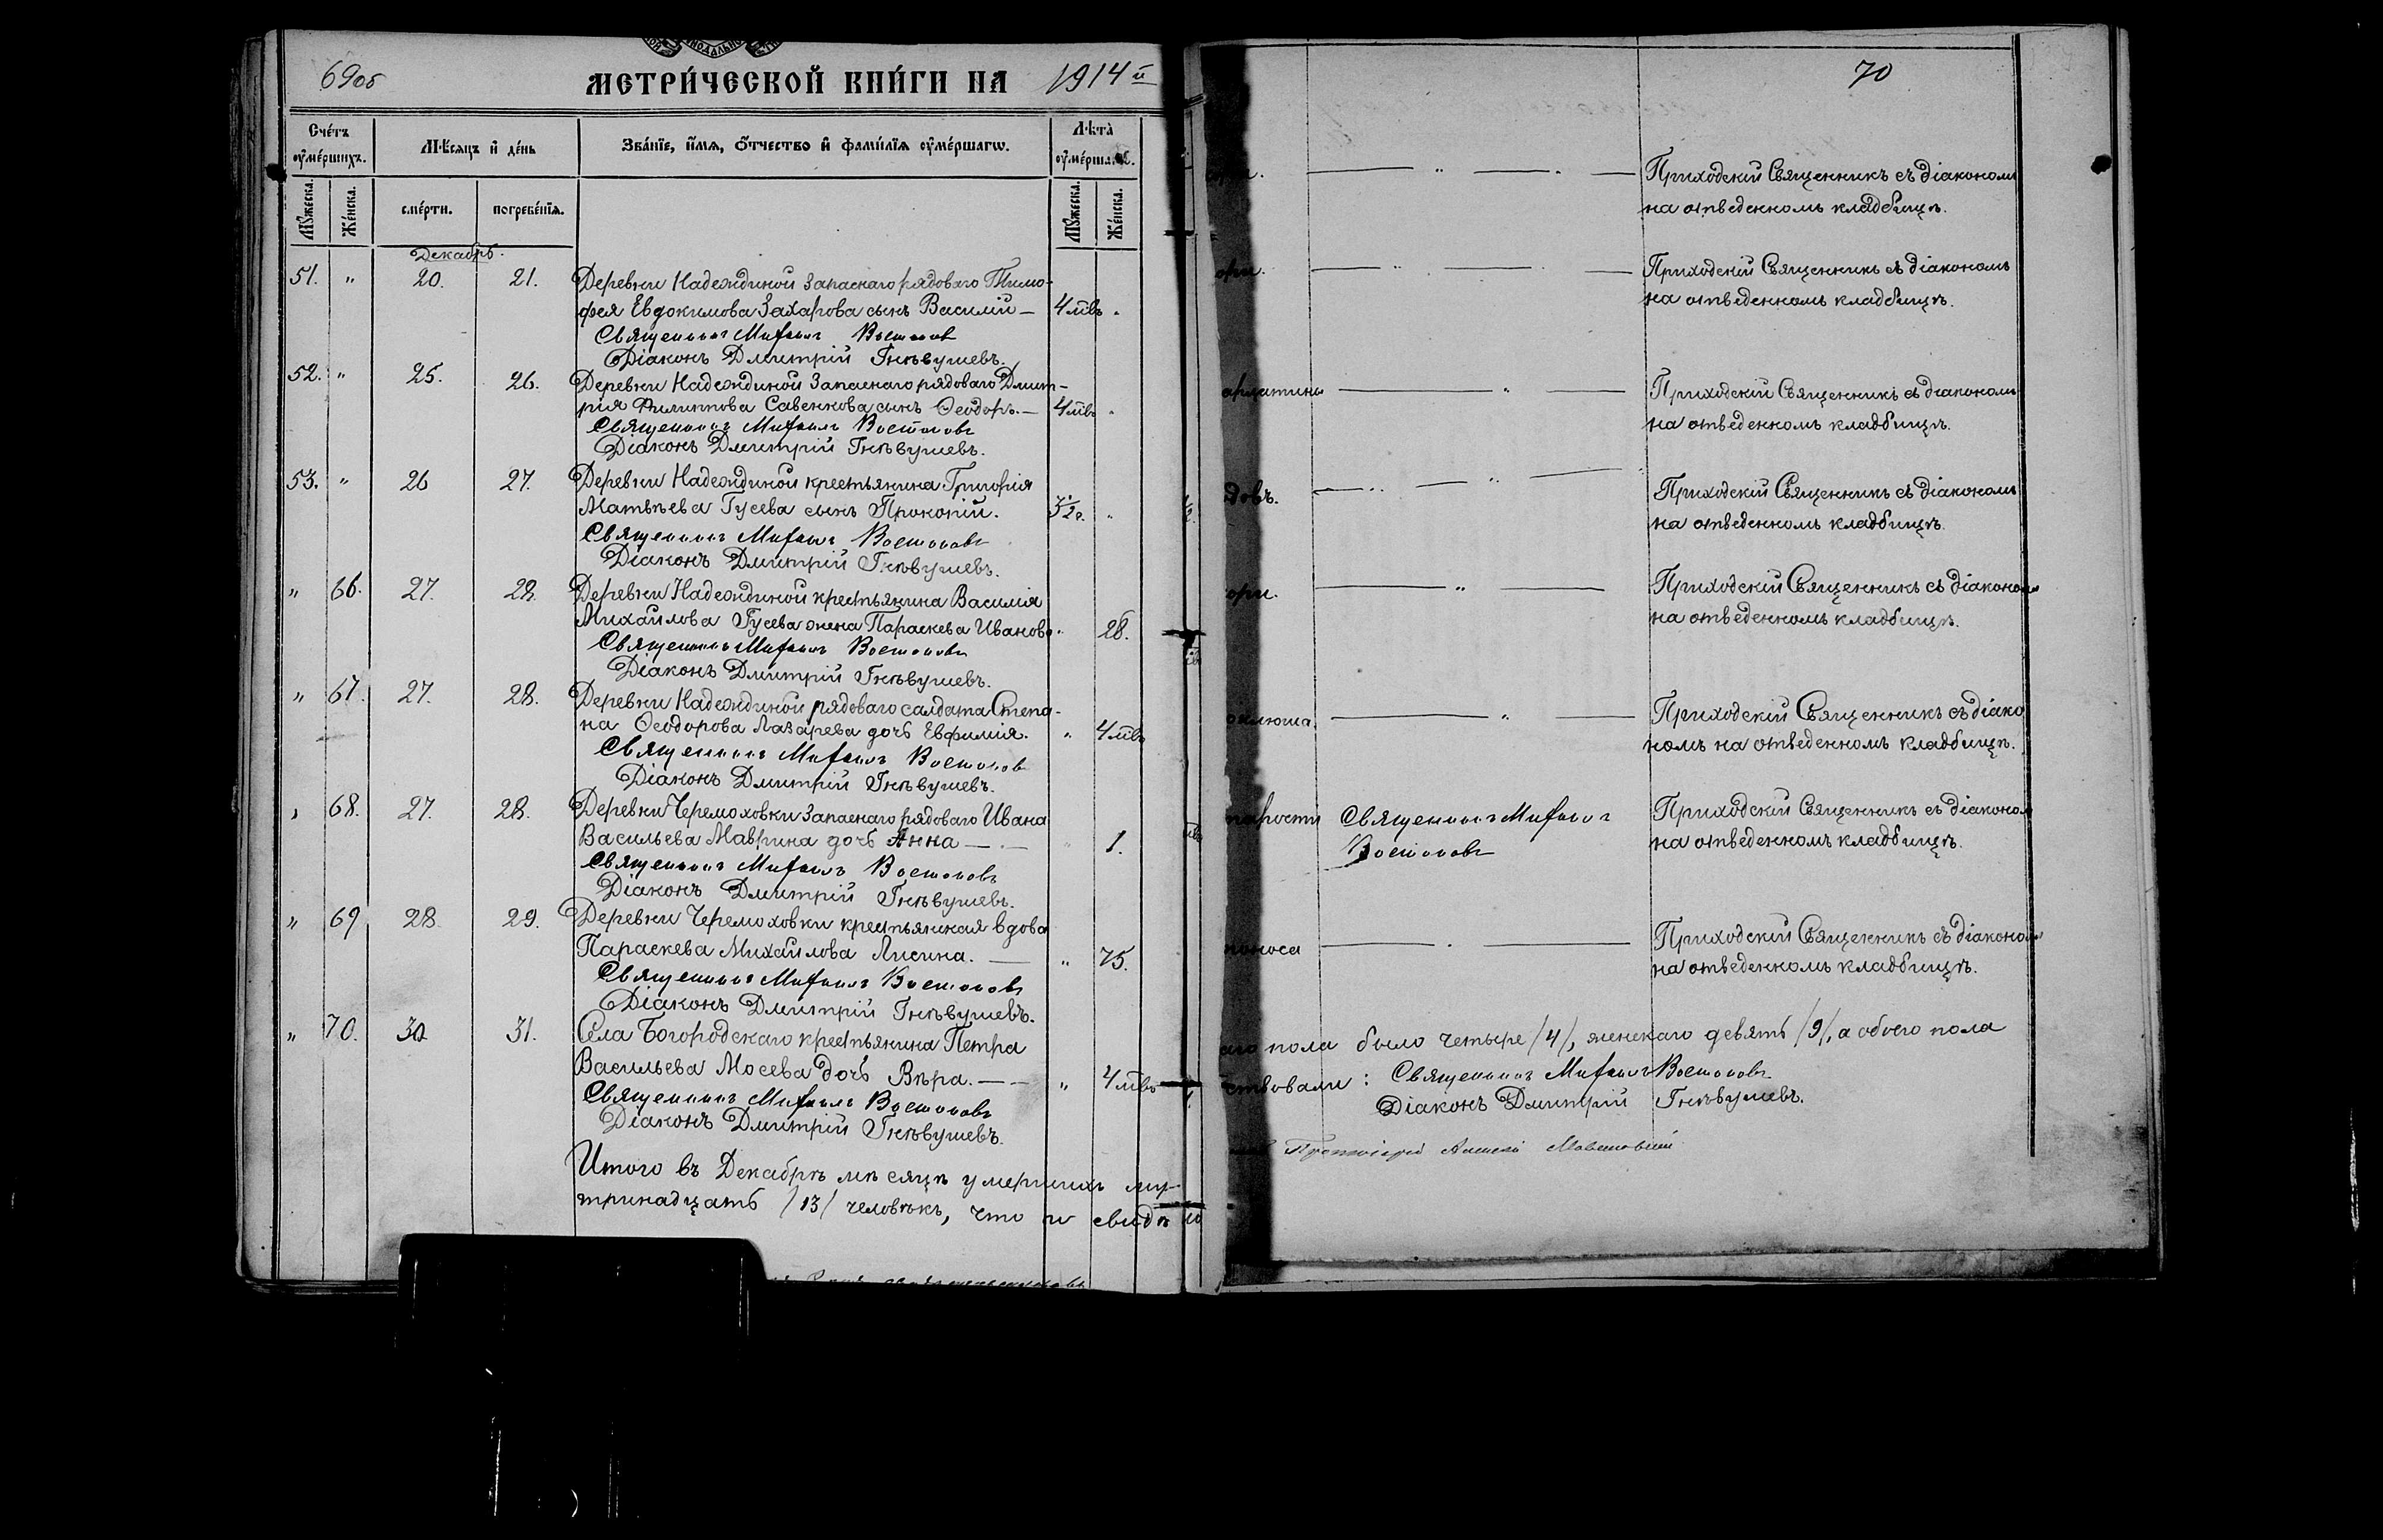 69об
МЕТРИ́ЧЕСКОЙ КНИ́ГИ НА 1914й
Сче́тъ оу҆ме́ршихъ.
Мѣ́сяцъ и҆ де́нь
Зва́нїе, и҆́мѧ, ѻ҆́тчество и҆ фами́лїѧ оу҆ме́ршагѡ.
Лѣта̀ оу҆ме́ршагѡ.
Мꙋ́жеска.
Же́нска.
сме́рти.
погребе́нїѧ.
Мꙋ́жеска.
Же́нска.
Декабрь.
51. " 20. 21. Деревни Надеждиной запаснаго рядоваго Тимо-
фея Евдокимова Захарова сынъ Василій — 4 мѣс "
Священникъ Михаилъ Востоковъ
Діаконъ Дмитрій Гнѣвушевъ.
52. " 25. 26. Деревни Надеждиной запаснаго рядоваго Дмит-
рія Филиппова Савенкова сынъ Ѳеодоръ. — 4 мѣс "
Священникъ Михаилъ Востоковъ
Діаконъ Дмитрій Гнѣвушевъ.
53. " 26 27. Деревни Надеждиной крестьянина Григорія
Матвѣева Гусева сынъ Прокопій. "
Священникъ Михаилъ Востоковъ
Діаконъ Дмитрій Гнѣвушевъ.
" 66. 27. 28. Деревни Надеждиной крестьянина Василія
Михайлова Гусева жена Параскева Иванова " 28.
Священникъ Михаилъ Востоковъ
Діаконъ Дмитрій Гнѣвушевъ.
" 67. 27. 28. Деревни Надеждиной рядоваго солдата Степа-
на Ѳеодорова Лазарева дочь Евфимія. " 4 мѣс
Священникъ Михаилъ Востоковъ
Діаконъ Дмитрій Гнѣвушевъ.
" 68. 27. 28. Деревни Черемоховки запаснаго рядоваго Ивана
Васильева Маврина дочь Анна — " 1.
Священникъ Михаилъ Востоковъ
Діаконъ Дмитрій Гнѣвушевъ.
" 69 28 29. Деревни Черемоховки крестьянская вдова
Параскева Михайлова Лисина. — " 75.
Священникъ Михаилъ Востоковъ
Діаконъ Дмитрій Гнѣвушевъ.
" 70. 30 31. Села Богородскаго крестьянина Петра
Васильева Мосева дочь Вѣра. — " 4 мѣс
Священникъ Михаилъ Востоковъ
Діаконъ Дмитрій Гнѣвушевъ.
Итого въ Декабрѣ мѣсяцѣ умершихъ муж-
тринадцать /13/ человѣкъ, что и свидѣ
70
Приходскій Священникъ съ діакономъ
на отведенномъ кладбищѣ.
ори. Приходскій Священникъ съ діакономъ
на отведенномъ кладбищѣ.
Приходскій Священникъ съ діакономъ
на отведенномъ кладбищѣ.
довъ. Приходскій Священникъ съ діакономъ
на отведенномъ кладбищѣ.
ори. Приходскій Священникъ съ діакономъ
на отведенномъ кладбищѣ.
оклюша. Приходскій Священникъ съ діако
номъ на отведенномъ кладбищѣ.
тарости Священникъ Михаилъ
Востоковъ
Приходскій Священникъ съ діакономъ
на отведенномъ кладбищѣ.
поноса Приходскій Священникъ съ діакономъ
на отведенномъ кладбищѣ.
аго пола было четыре /4/, женскаго девять /9/, а обоего пола
ствовали: Священникъ Михаилъ Востоковъ
Діаконъ Дмитрій Гнѣвушевъ.
Протоіерей